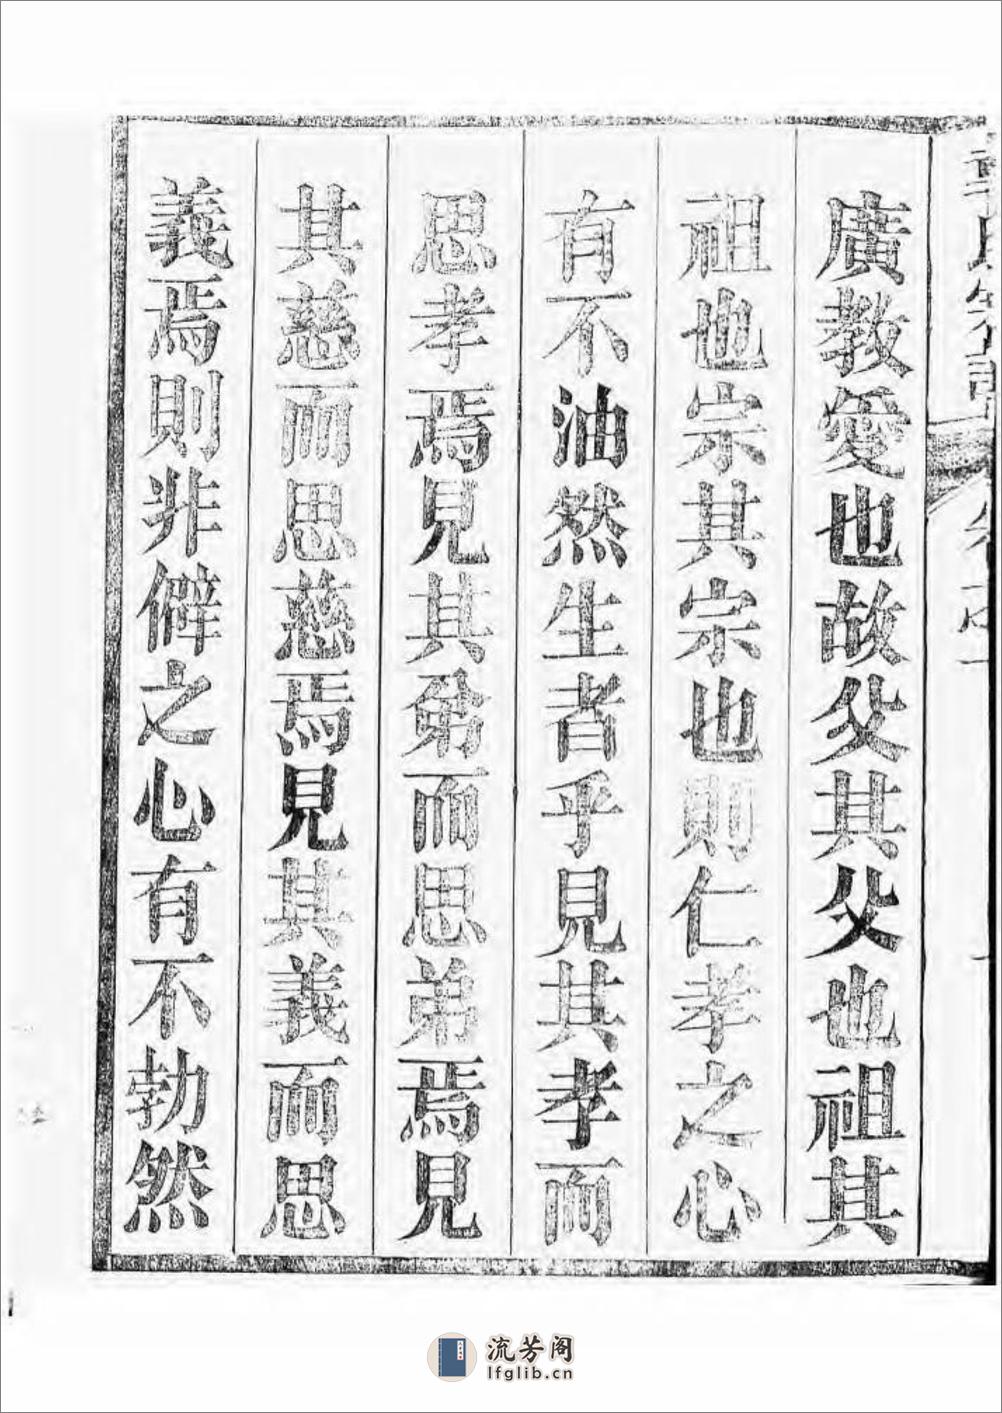 廣教愛也故父其父也祖其
祖也宗其宗也則仁孝之心
有不油然生者乎見其孝而
思孝焉見其弟而思弟焉見
其慈而思慈焉見其義而思
義焉則非僻之心有不勃然
流芳阁
lfglib.cn